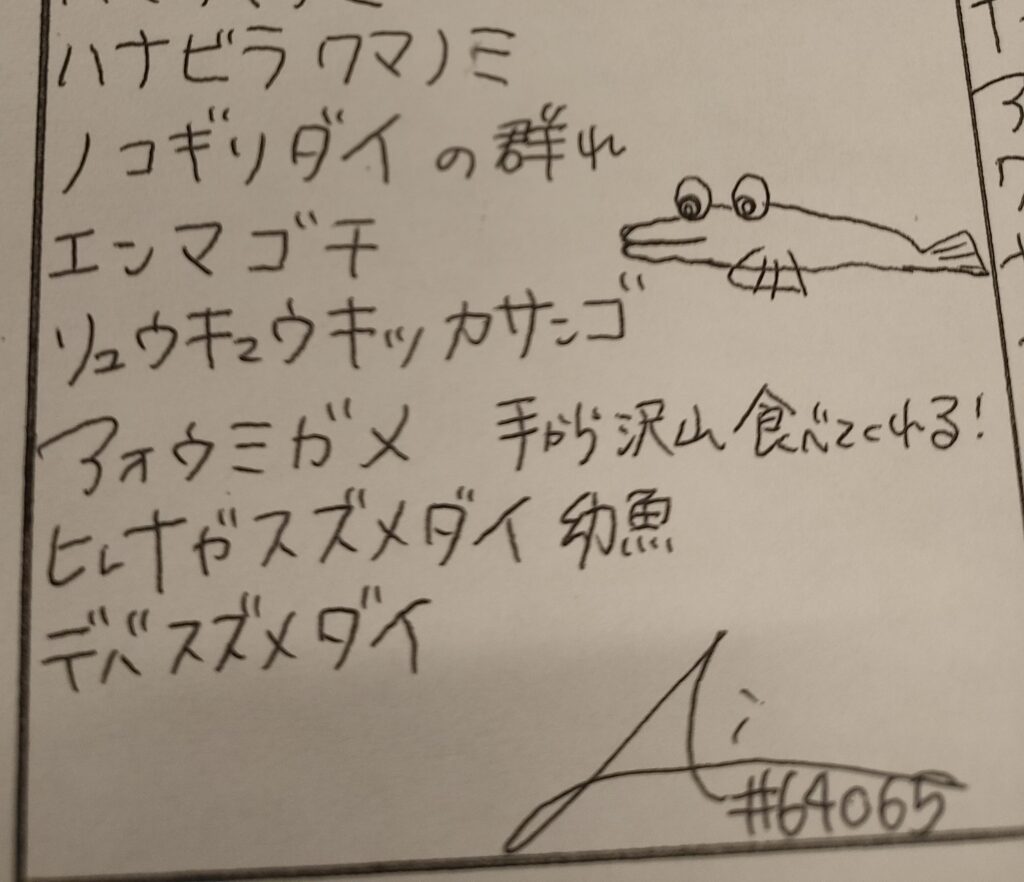 ハナビラクマノミ
ノコギリダイの群れ
エンマゴチ
リュウキュウキッカサンゴ
アオウミガメ 手から沢山食べてくれる!
ヒレナガスズメダイ 幼魚
デバスズメダイ
Ai
#64065